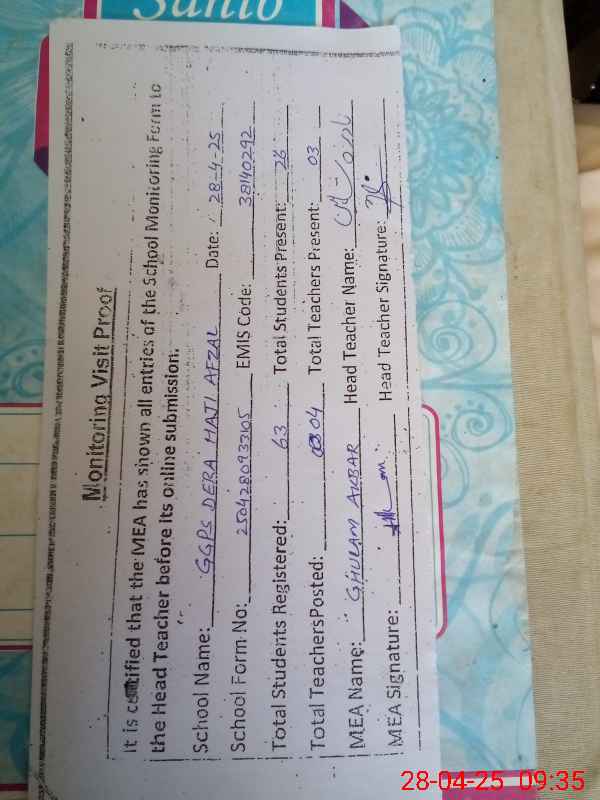 Monitoring Visit Proof
It is certified that the MEA has shown all entries of the School Monitoring Form to
the Head Teacher before its online submission.
School Name: GGPS DERA HAJI AFZAL Date: 28-4-25
School Form No: 2504280933105 EMIS Code: 38140292
Total Students Registered: 63 Total Students Present: 26
Total Teachers Posted: 04 Total Teachers Present: 03
MEA Name: GHULAM AKBAR Head Teacher Name:
MEA Signature: Head Teacher Signature:
28-04-25 09:35